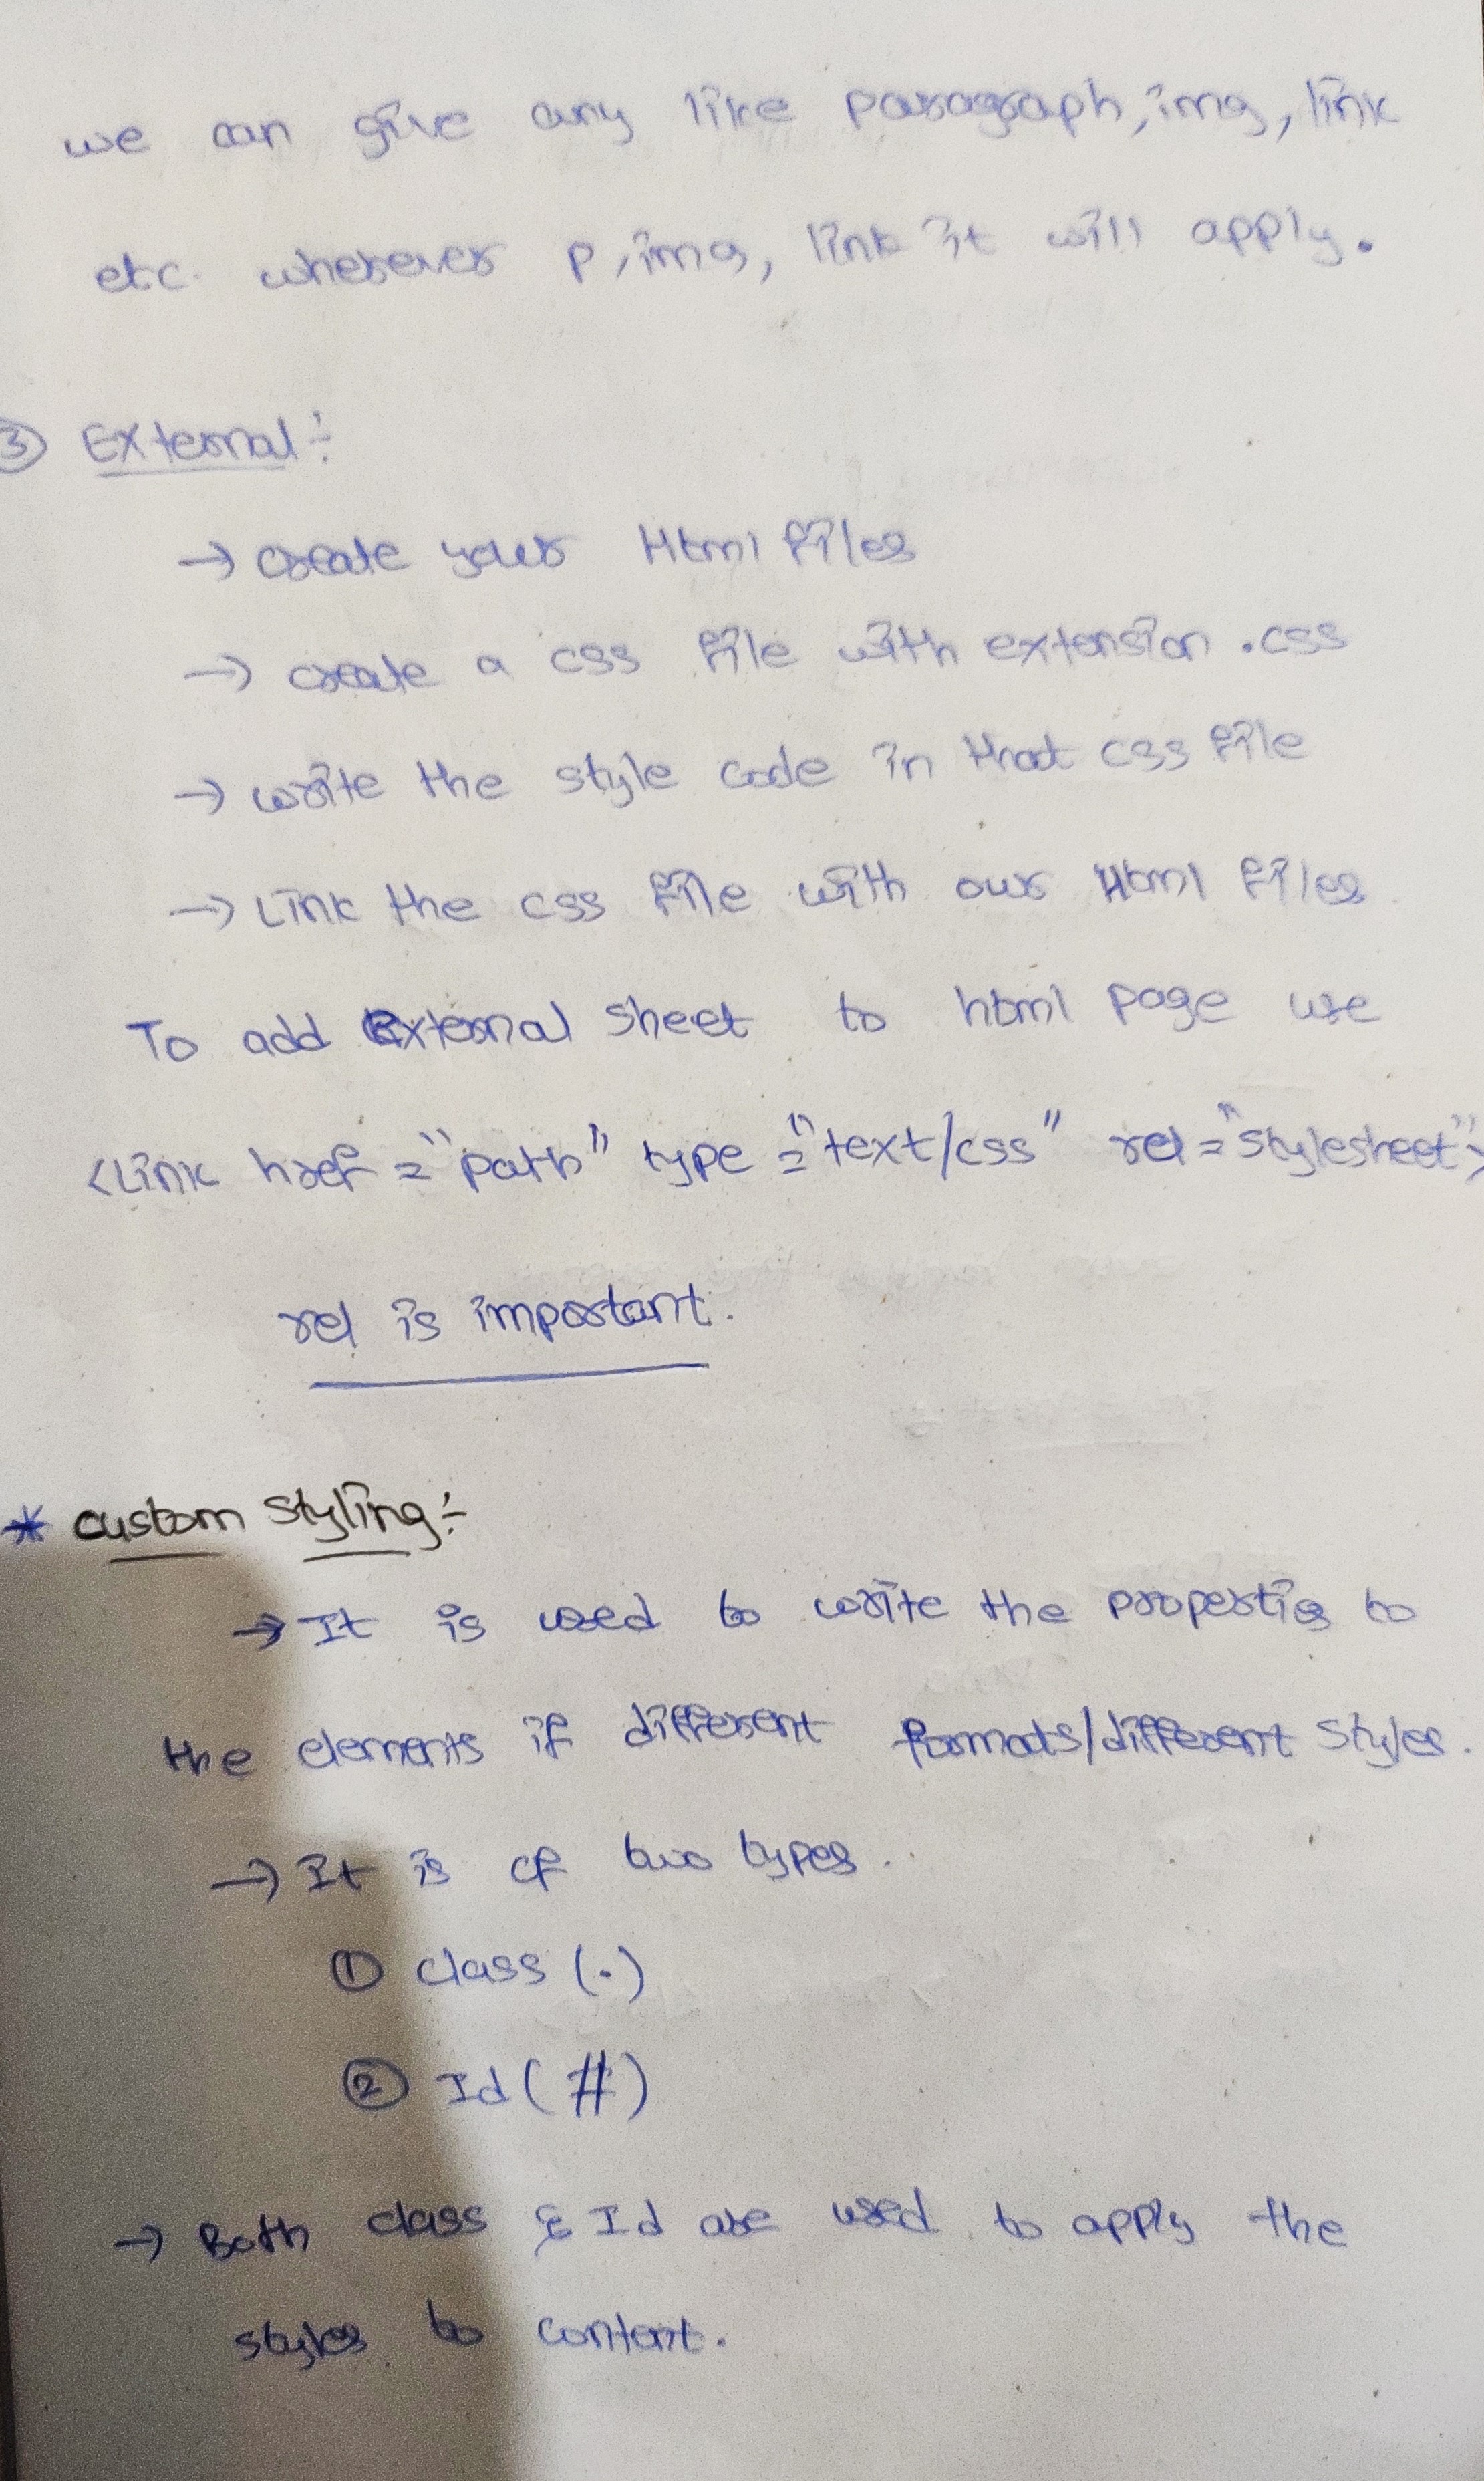 we can give any like paragraph, img, link
etc. wherever p, img, link it will apply.
③ External :-
→ create your Html files
→ create a css file with extension .css
→ write the style code in that css file
→ Link the css file with our Html files
To add External sheet to html page use
<Link href = "path" type = "text/css" rel = "stylesheet">
rel is important.
* custom styling :-
→ It is used to write the properties to
the elements if different formats/different styles.
→ It is of two types..
① class (.)
② Id (#)
→ Both class & Id are used to apply the
styles to content.